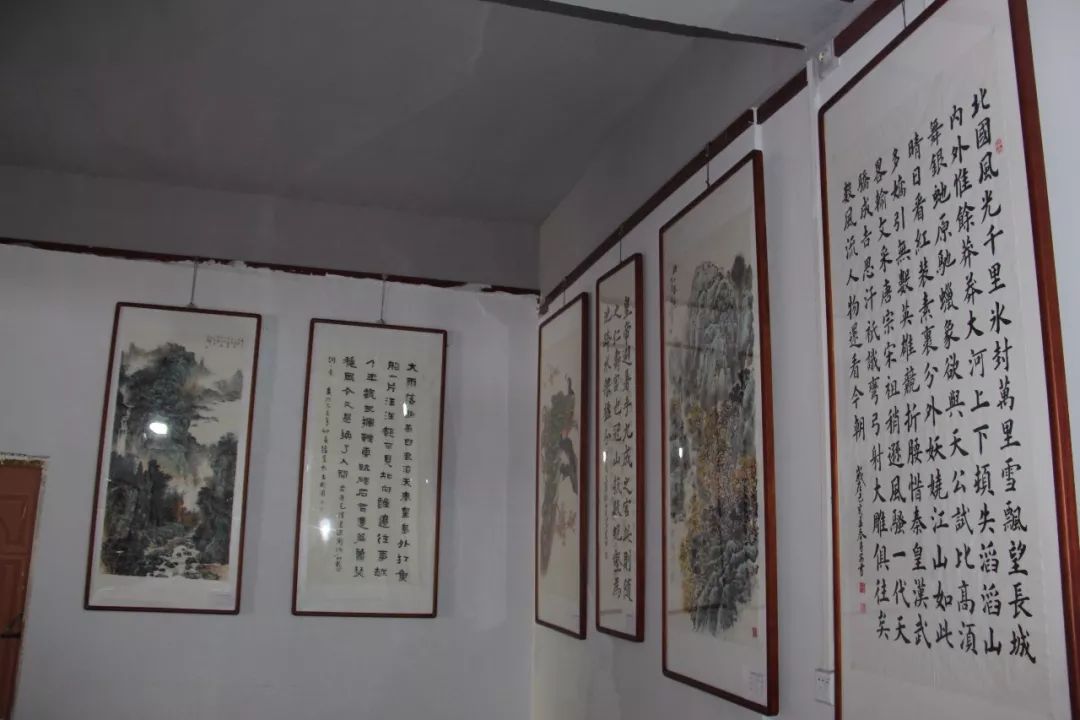 大雨落幽燕白浪滔天秦皇島外打魚
船一片汪洋都不見知向誰邊往事越
千年魏武揮鞭東臨碣石有遺篇蕭瑟
秋風今又是換了人間
皇帝避暑乎九成之宮此則隨
之仁壽宮也冠山抗殿絕壑為
池跨水架楹分
北國風光千里冰封萬里雪飄望長城
內外惟餘莽莽大河上下頓失滔滔山
舞銀虵原馳蠟象欲與天公試比高須
晴日看紅裝素裹分外妖嬈江山如此
多嬌引無數英雄競折腰惜秦皇漢武
畧輸文采唐宗宋祖稍遜風騷一代天
驕成吉思汗祇識彎弓射大雕俱往矣
數風流人物還看今朝